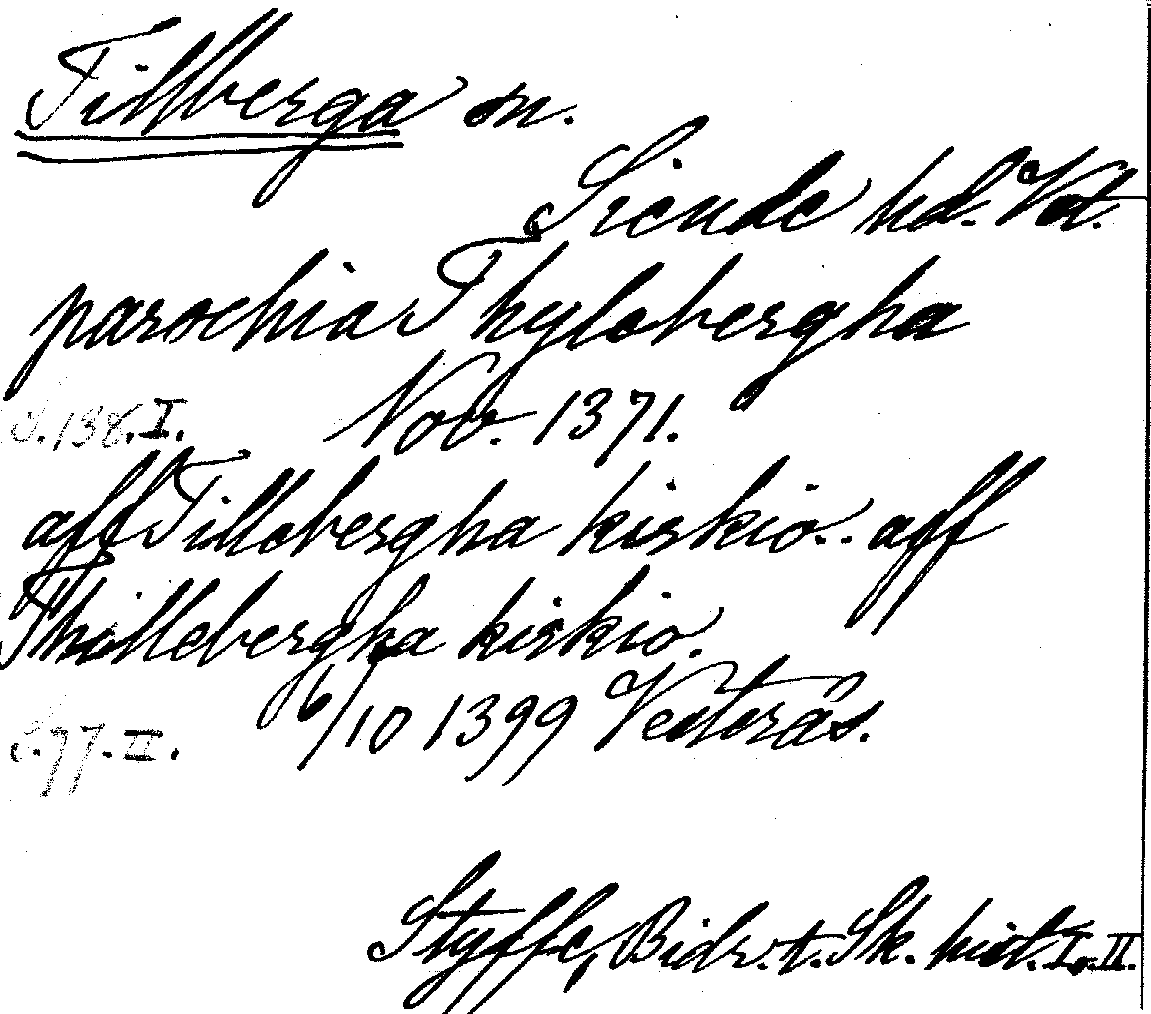 Tillberga sn.
Siende hd. Vstl.
parochia Thylebergha
S. 138. I. Nov. 1371.
aff Tillebergha kirkio.. aff
Thillebergha kirkio.
S. 77. II. 6/10 1399 Vesterås.
Styffe, Bidr. t. Sk. hist. I o. II.